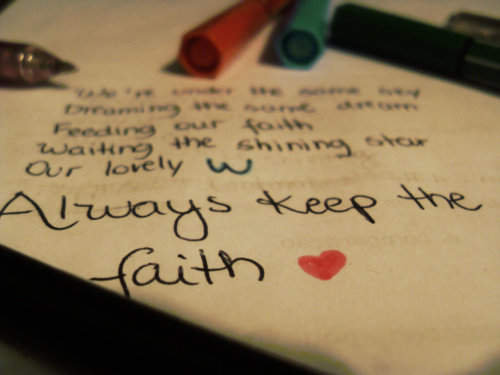 We're under the same sky
Dreaming the same dream
Feeding our faith
Waiting the shining star
Our lovely W
Always keep the
faith